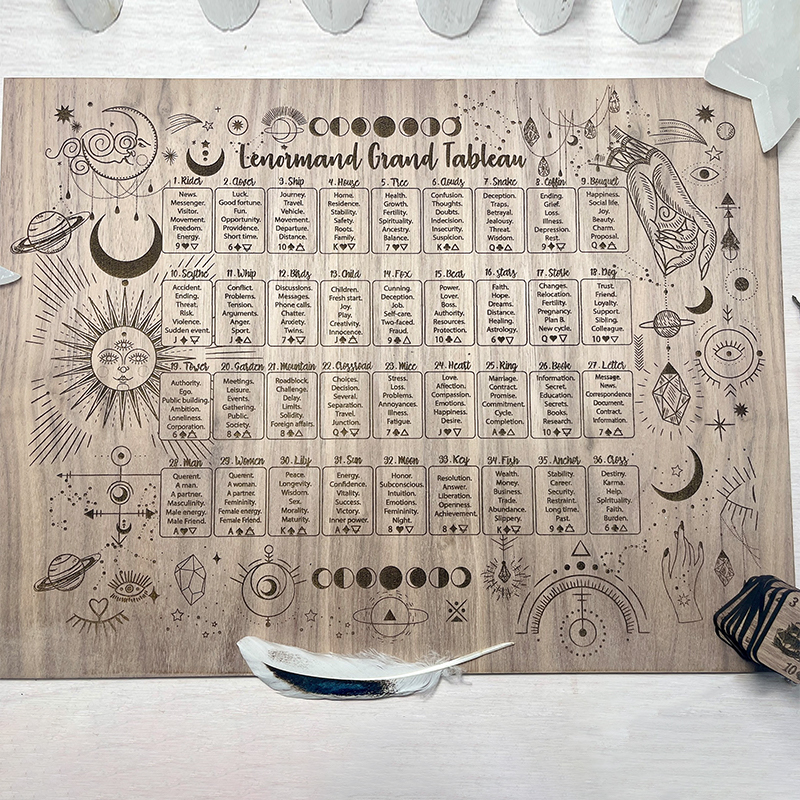 Lenormand Grand Tableau
1. Rider
News.
Messenger.
Visitor.
Movement.
Freedom.
Energy.
9 ♥ ▽
2. Clover
Luck.
Good fortune.
Fun.
Opportunity.
Providence.
Short time.
6 ♦ ▽
3. Ship
Journey.
Travel.
Vehicle.
Movement.
Departure.
Distance.
10 ♠ △
4. House
Home.
Residence.
Stability.
Safety.
Roots.
Family.
K ♥ ▽
5. Tree
Health.
Growth.
Fertility.
Spirituality.
Ancestry.
Balance.
7 ♥ ▽
6. Clouds
Confusion.
Thoughts.
Doubts.
Indecision.
Insecurity.
Suspicion.
K ♣ △
7. Snake
Deception.
Traps.
Betrayal.
Jealousy.
Threat.
Wisdom.
Q ♣ △
8. Coffin
Ending.
Grief.
Loss.
Illness.
Depression.
Rest.
9 ♦ ▽
9. Bouquet
Happiness.
Social life.
Joy.
Beauty.
Charm.
Proposal.
Q ♠ △
10. Scythe
Accident.
Ending.
Threat.
Risk.
Violence.
Sudden event.
J ♦ ▽
11. Whip
Conflict.
Problems.
Tension.
Arguments.
Anger.
Sport.
J ♣ △
12. Birds
Discussions.
Messages.
Phone calls.
Chatter.
Anxiety.
Twins.
7 ♦ ▽
13. Child
Children.
Fresh start.
Joy.
Play.
Creativity.
Innocence.
J ♠ △
14. Fox
Cunning.
Deception.
Job.
Self-care.
Two-faced.
Fraud.
9 ♣ △
15. Bear
Power.
Lover.
Boss.
Authority.
Resources.
Protection.
10 ♣ △
16. Stars
Faith.
Hope.
Dreams.
Distance.
Healing.
Astrology.
6 ♥ ▽
17. Stork
Changes.
Relocation.
Fertility.
Pregnancy.
Plan B.
New cycle.
Q ♥ ▽
18. Dog
Trust.
Friend.
Loyalty.
Support.
Sibling.
Colleague.
10 ♥ ▽
19. Tower
Authority.
Ego.
Public building.
Ambition.
Loneliness.
Corporation.
6 ♠ △
20. Garden
Meetings.
Leisure.
Events.
Gathering.
Public.
Society.
8 ♠ △
21. Mountain
Roadblock.
Challenge.
Delay.
Limits.
Solidity.
Foreign affairs.
8 ♣ △
22. Crossroad
Choices.
Decision.
Several.
Separation.
Travel.
Junction.
Q ♦ ▽
23. Mice
Stress.
Loss.
Problems.
Annoyances.
Illness.
Fatigue.
7 ♣ △
24. Heart
Love.
Affection.
Compassion.
Emotions.
Happiness.
Desire.
J ♥ ▽
25. Ring
Marriage.
Contract.
Promise.
Commitment.
Cycle.
Completion.
A ♣ △
26. Book
Information.
Secret.
Education.
Secrets.
Books.
Research.
10 ♦ ▽
27. Letter
Message.
News.
Correspondence
Document.
Contract.
Information.
7 ♠ △
28. Man
Querent.
A man.
A partner.
Masculinity.
Male energy.
Male Friend.
A ♥ ▽
29. Women
Querent.
A woman.
A partner.
Femininity.
Female energy.
Female Friend.
A ♠ △
30. Lily
Peace.
Longevity.
Wisdom.
Sex.
Morality.
Maturity.
K ♠ △
31. Sun
Energy.
Confidence.
Vitality.
Success.
Victory.
Inner power.
A ♦ ▽
32. Moon
Honor.
Subconscious.
Intuition.
Emotions.
Femininity.
Night.
8 ♥ ▽
33. Key
Resolution.
Answer.
Liberation.
Openness.
Achievement.
8 ♦ ▽
34. Fish
Wealth.
Money.
Business.
Trade.
Abundance.
Slippery.
K ♦ ▽
35. Anchor
Stability.
Career.
Security.
Restraint.
Long time.
Past.
9 ♠ △
36. Cross
Destiny.
Karma.
Help.
Spirituality.
Faith.
Burden.
6 ♣ △
3
10